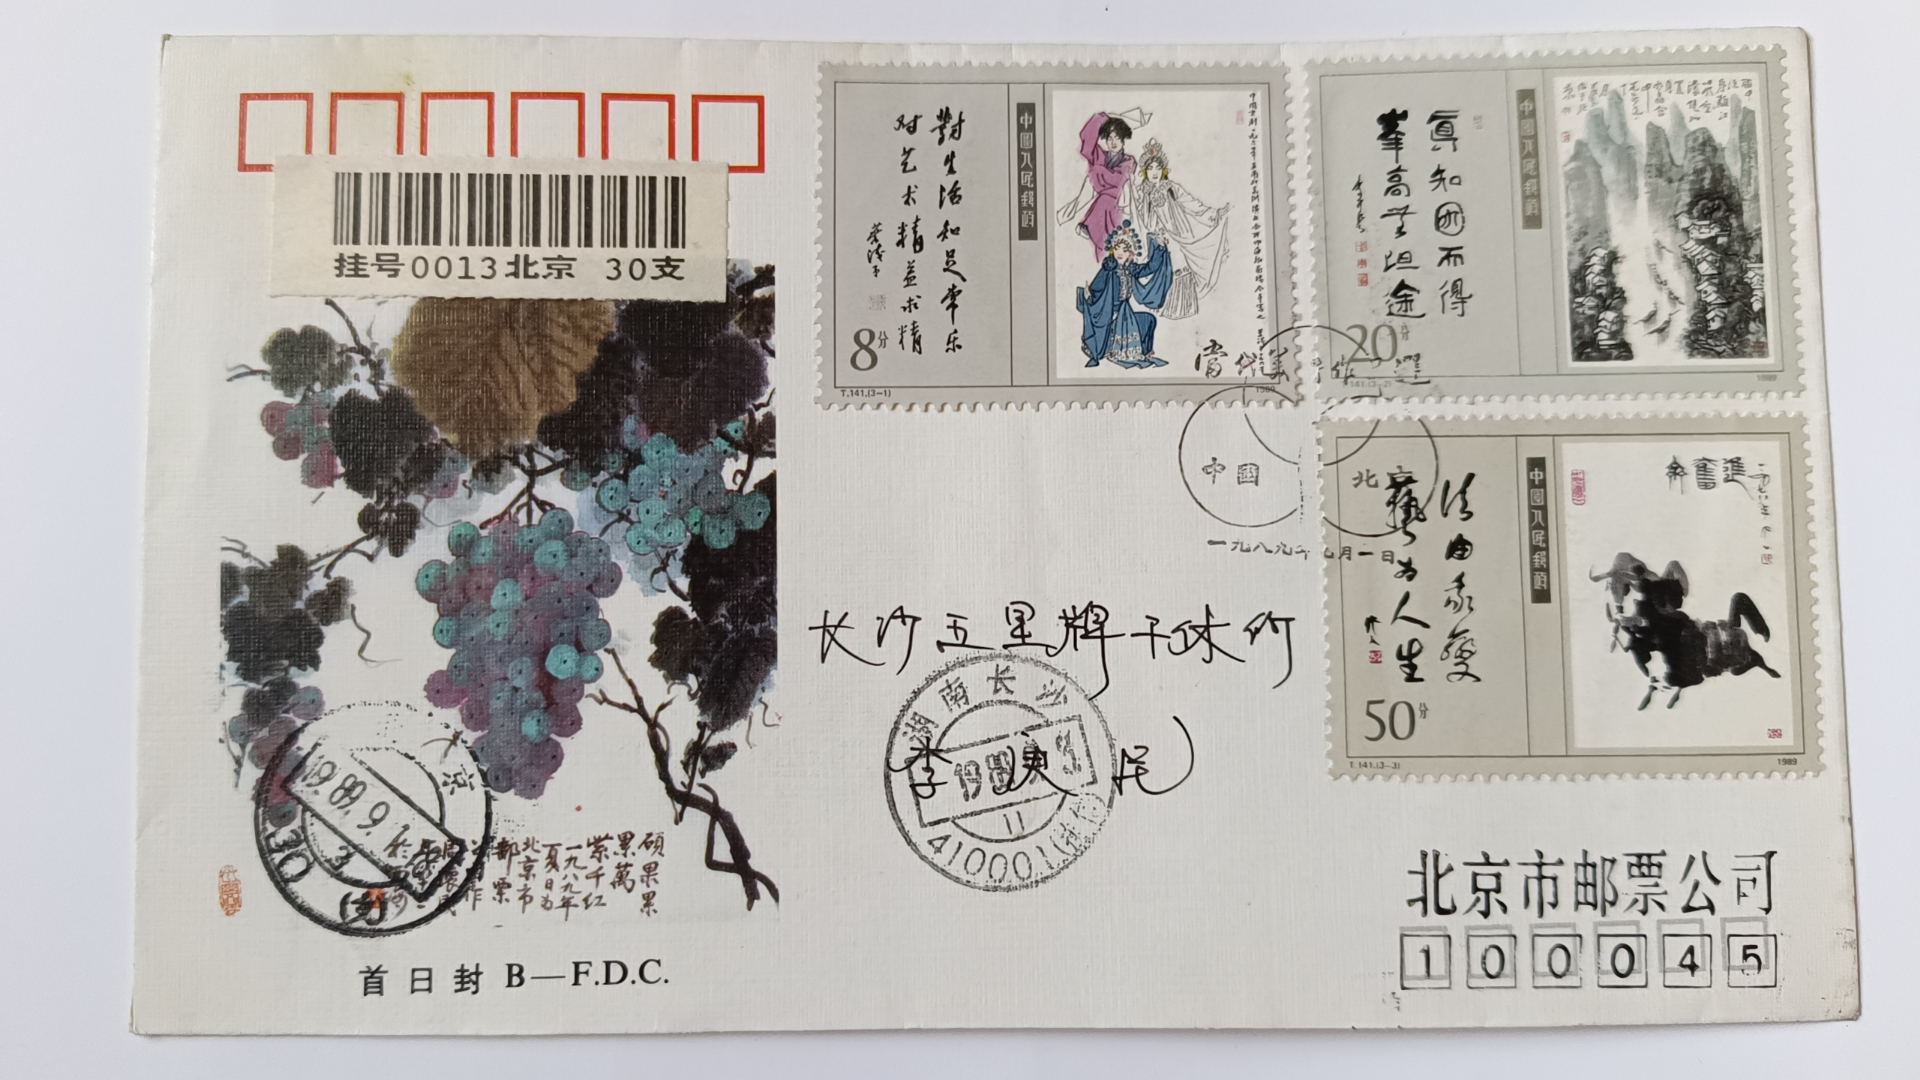 挂号0013北京 30支
對生活知足常乐
对艺术精益求精
中国人民邮政
8分
T.141.(3-1)
1989
眞知困而得
峯高無坦途
中国人民邮政
20分
T.141.(3-2)
1989
法由我變
藝为人生
中国人民邮政
50分
奮進
一九七八年
T.141.(3-3)
1989
中國
北
一九八九年九月一日
长沙五里牌干休所
李庚民
湖南长沙
1989
11
410001(
京
1989.9.1
3
30
硕果累
累萬
紫千红
一九八九年
夏日为
北京市
邮票
首日封 B—F.D.C.
北京市邮票公司
100045